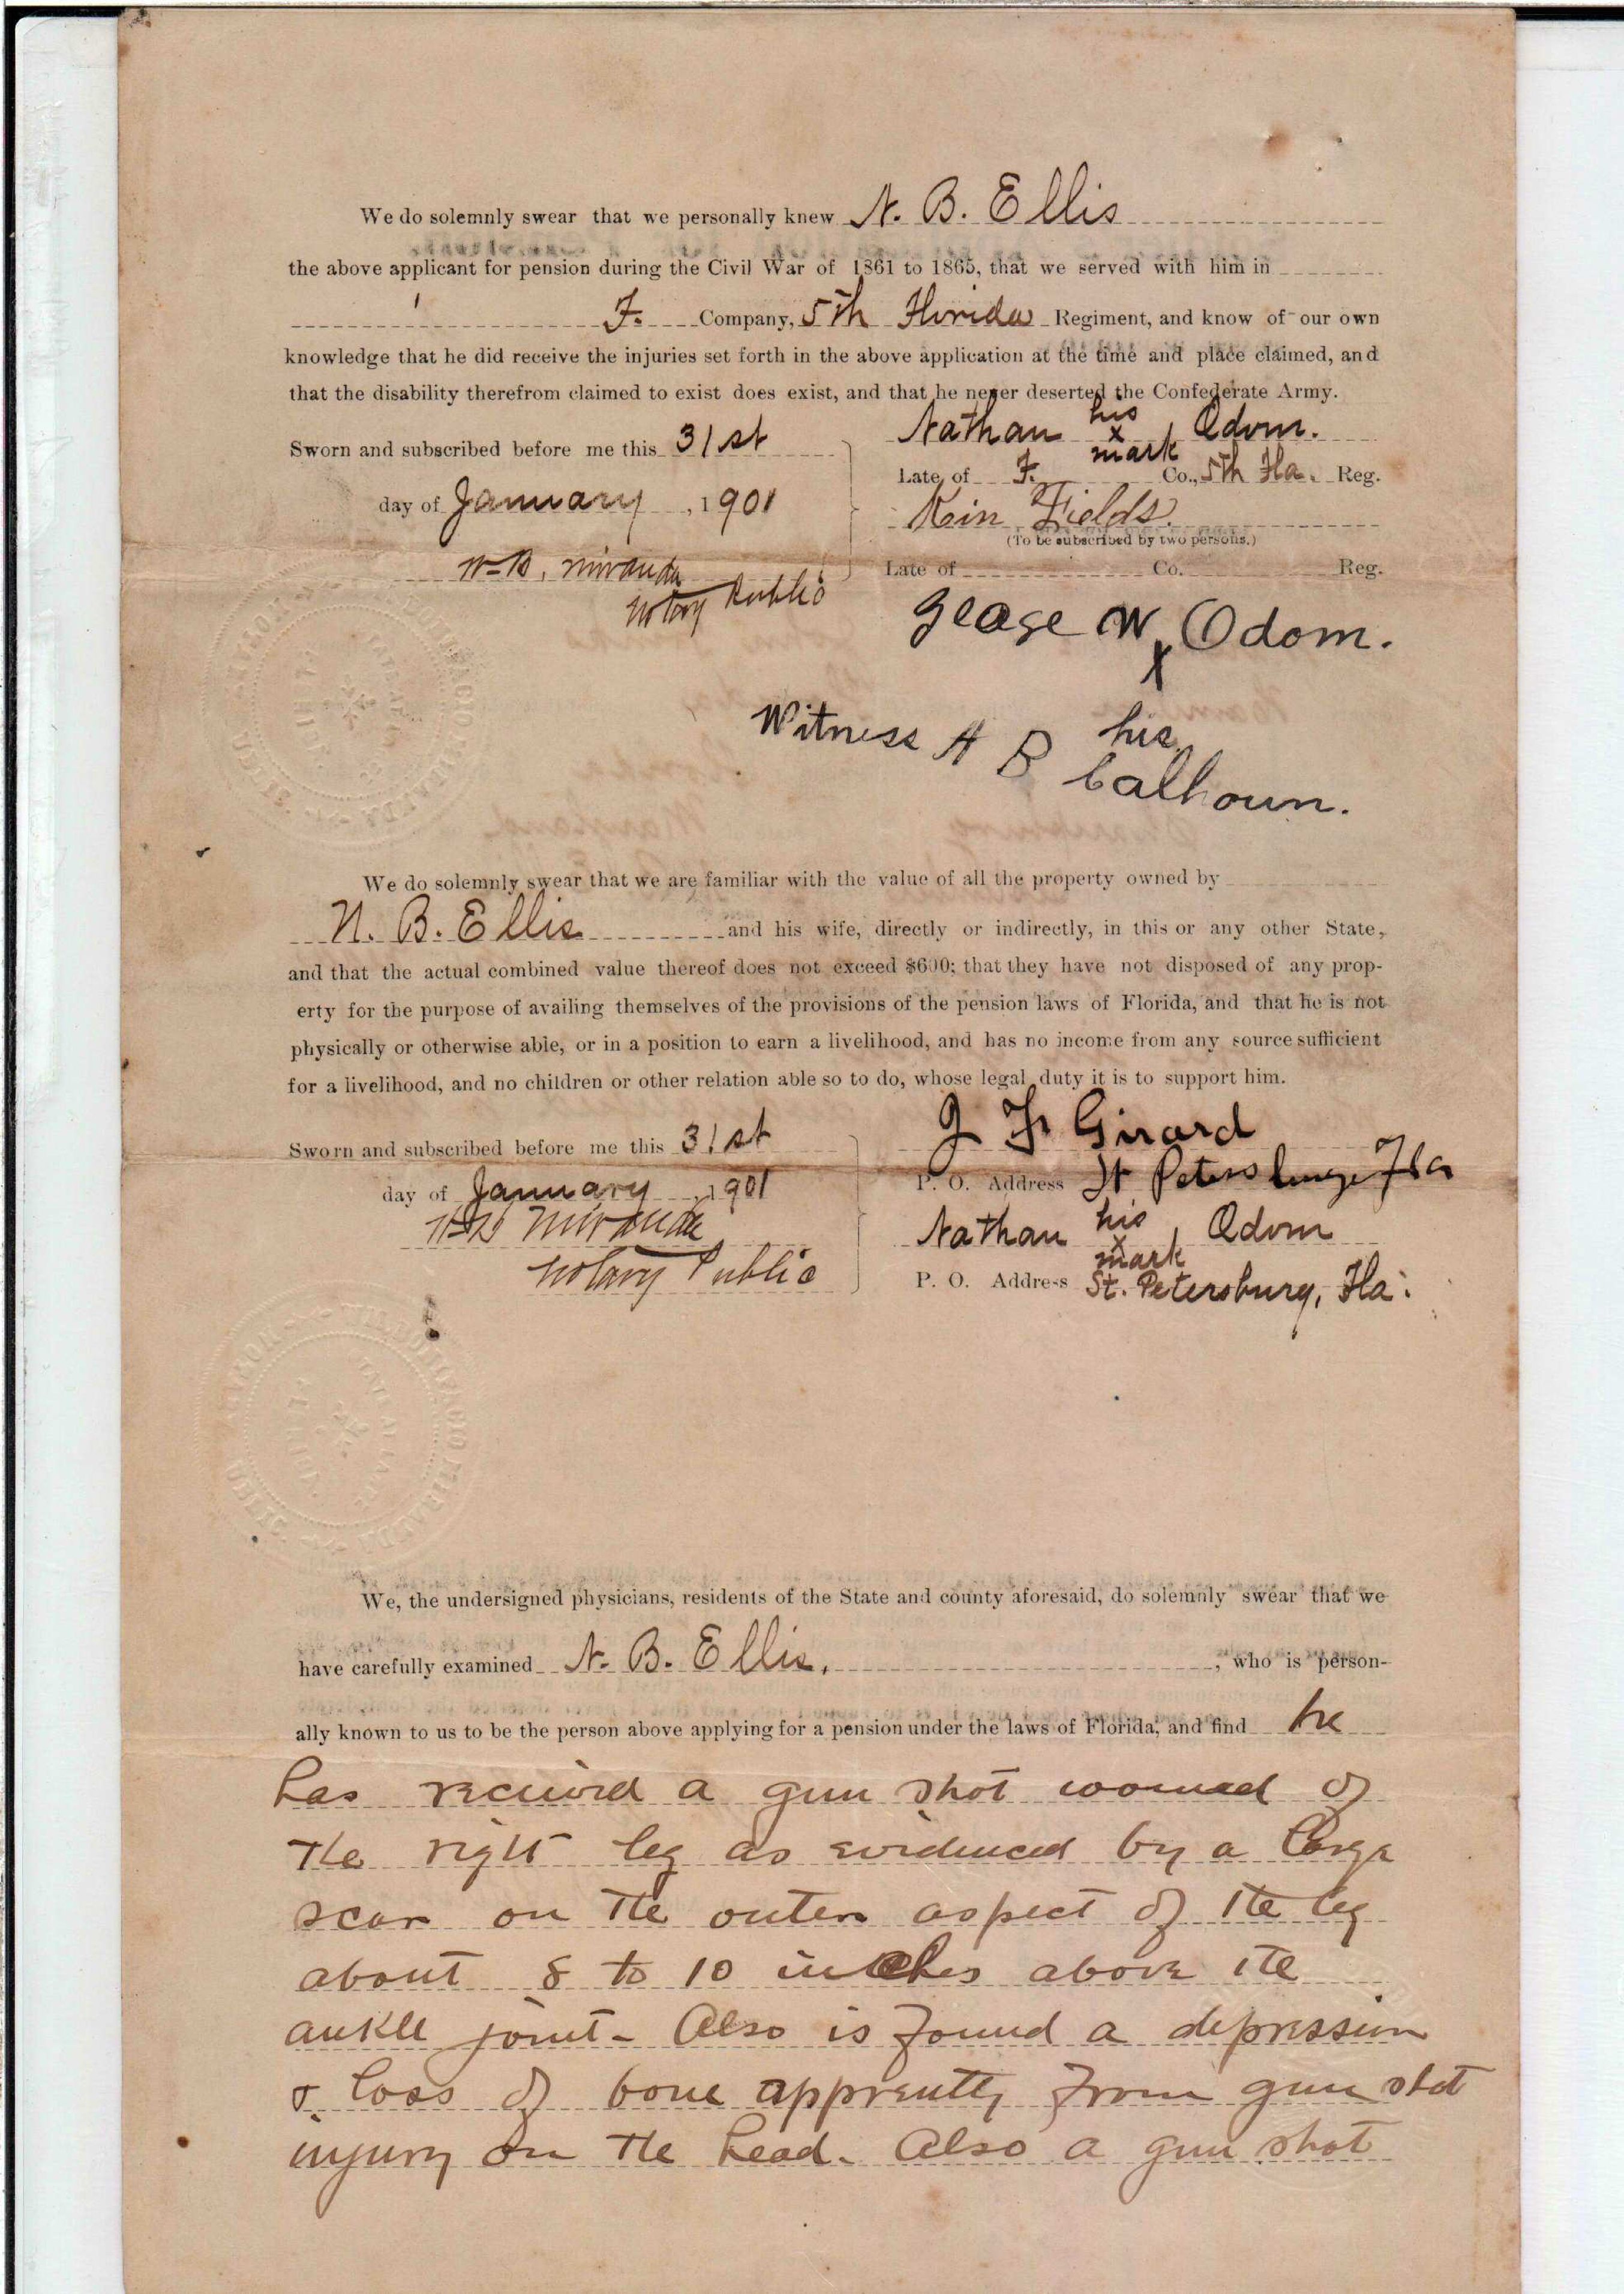 We do solemnly swear that we personally knew N. B. Ellis
the above applicant for pension during the Civil War of 1861 to 1865, that we served with him in
F. Company, 5th Florida Regiment, and know of our own
knowledge that he did receive the injuries set forth in the above application at the time and place claimed, and
that the disability therefrom claimed to exist does exist, and that he never deserted the Confederate Army.
Nathan his x mark Odom.
Sworn and subscribed before me this 31st
Late of F. Co., 5th Fla. Reg.
day of January, 1901
Fields.
(To be subscribed by two persons.)
Miranda
Late of Co. Reg.
Notary Public
Geoge W x Odom.
Witness A B his Calhoun.
We do solemnly swear that we are familiar with the value of all the property owned by
N. B. Ellis and his wife, directly or indirectly, in this or any other State,
and that the actual combined value thereof does not exceed $600; that they have not disposed of any prop-
erty for the purpose of availing themselves of the provisions of the pension laws of Florida, and that he is not
physically or otherwise able, or in a position to earn a livelihood, and has no income from any source sufficient
for a livelihood, and no children or other relation able so to do, whose legal duty it is to support him.
J F Girard
Sworn and subscribed before me this 31st
P. O. Address St Petersburg Fla
day of January, 1901
Miranda
Nathan his x mark Odom
Notary Public
P. O. Address St. Petersburg, Fla.
We, the undersigned physicians, residents of the State and county aforesaid, do solemnly swear that we
have carefully examined N. B. Ellis., who is person-
ally known to us to be the person above applying for a pension under the laws of Florida, and find he
has received a gun shot wound of
the right leg as evidenced by a large
scar on the outer aspect of the leg
about 8 to 10 inches above the
ankle joint - Also is found a depression
& loss of bone apprently from gun shot
injury on the head. Also a gun shot